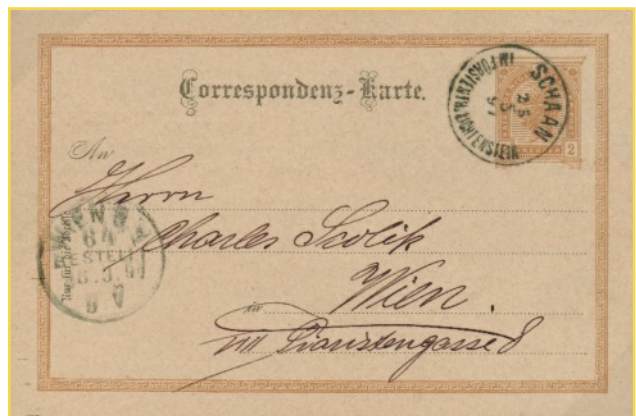 Correspondenz-Karte.
SCHAAN
IM FÜRSTENTH. LIECHTENSTEIN
25
5
97
2
An
Herrn
Charles Scolik
in Wien.
VIII Piaristengasse 8
WIEN
BESTELLT
Nur für die Adresse